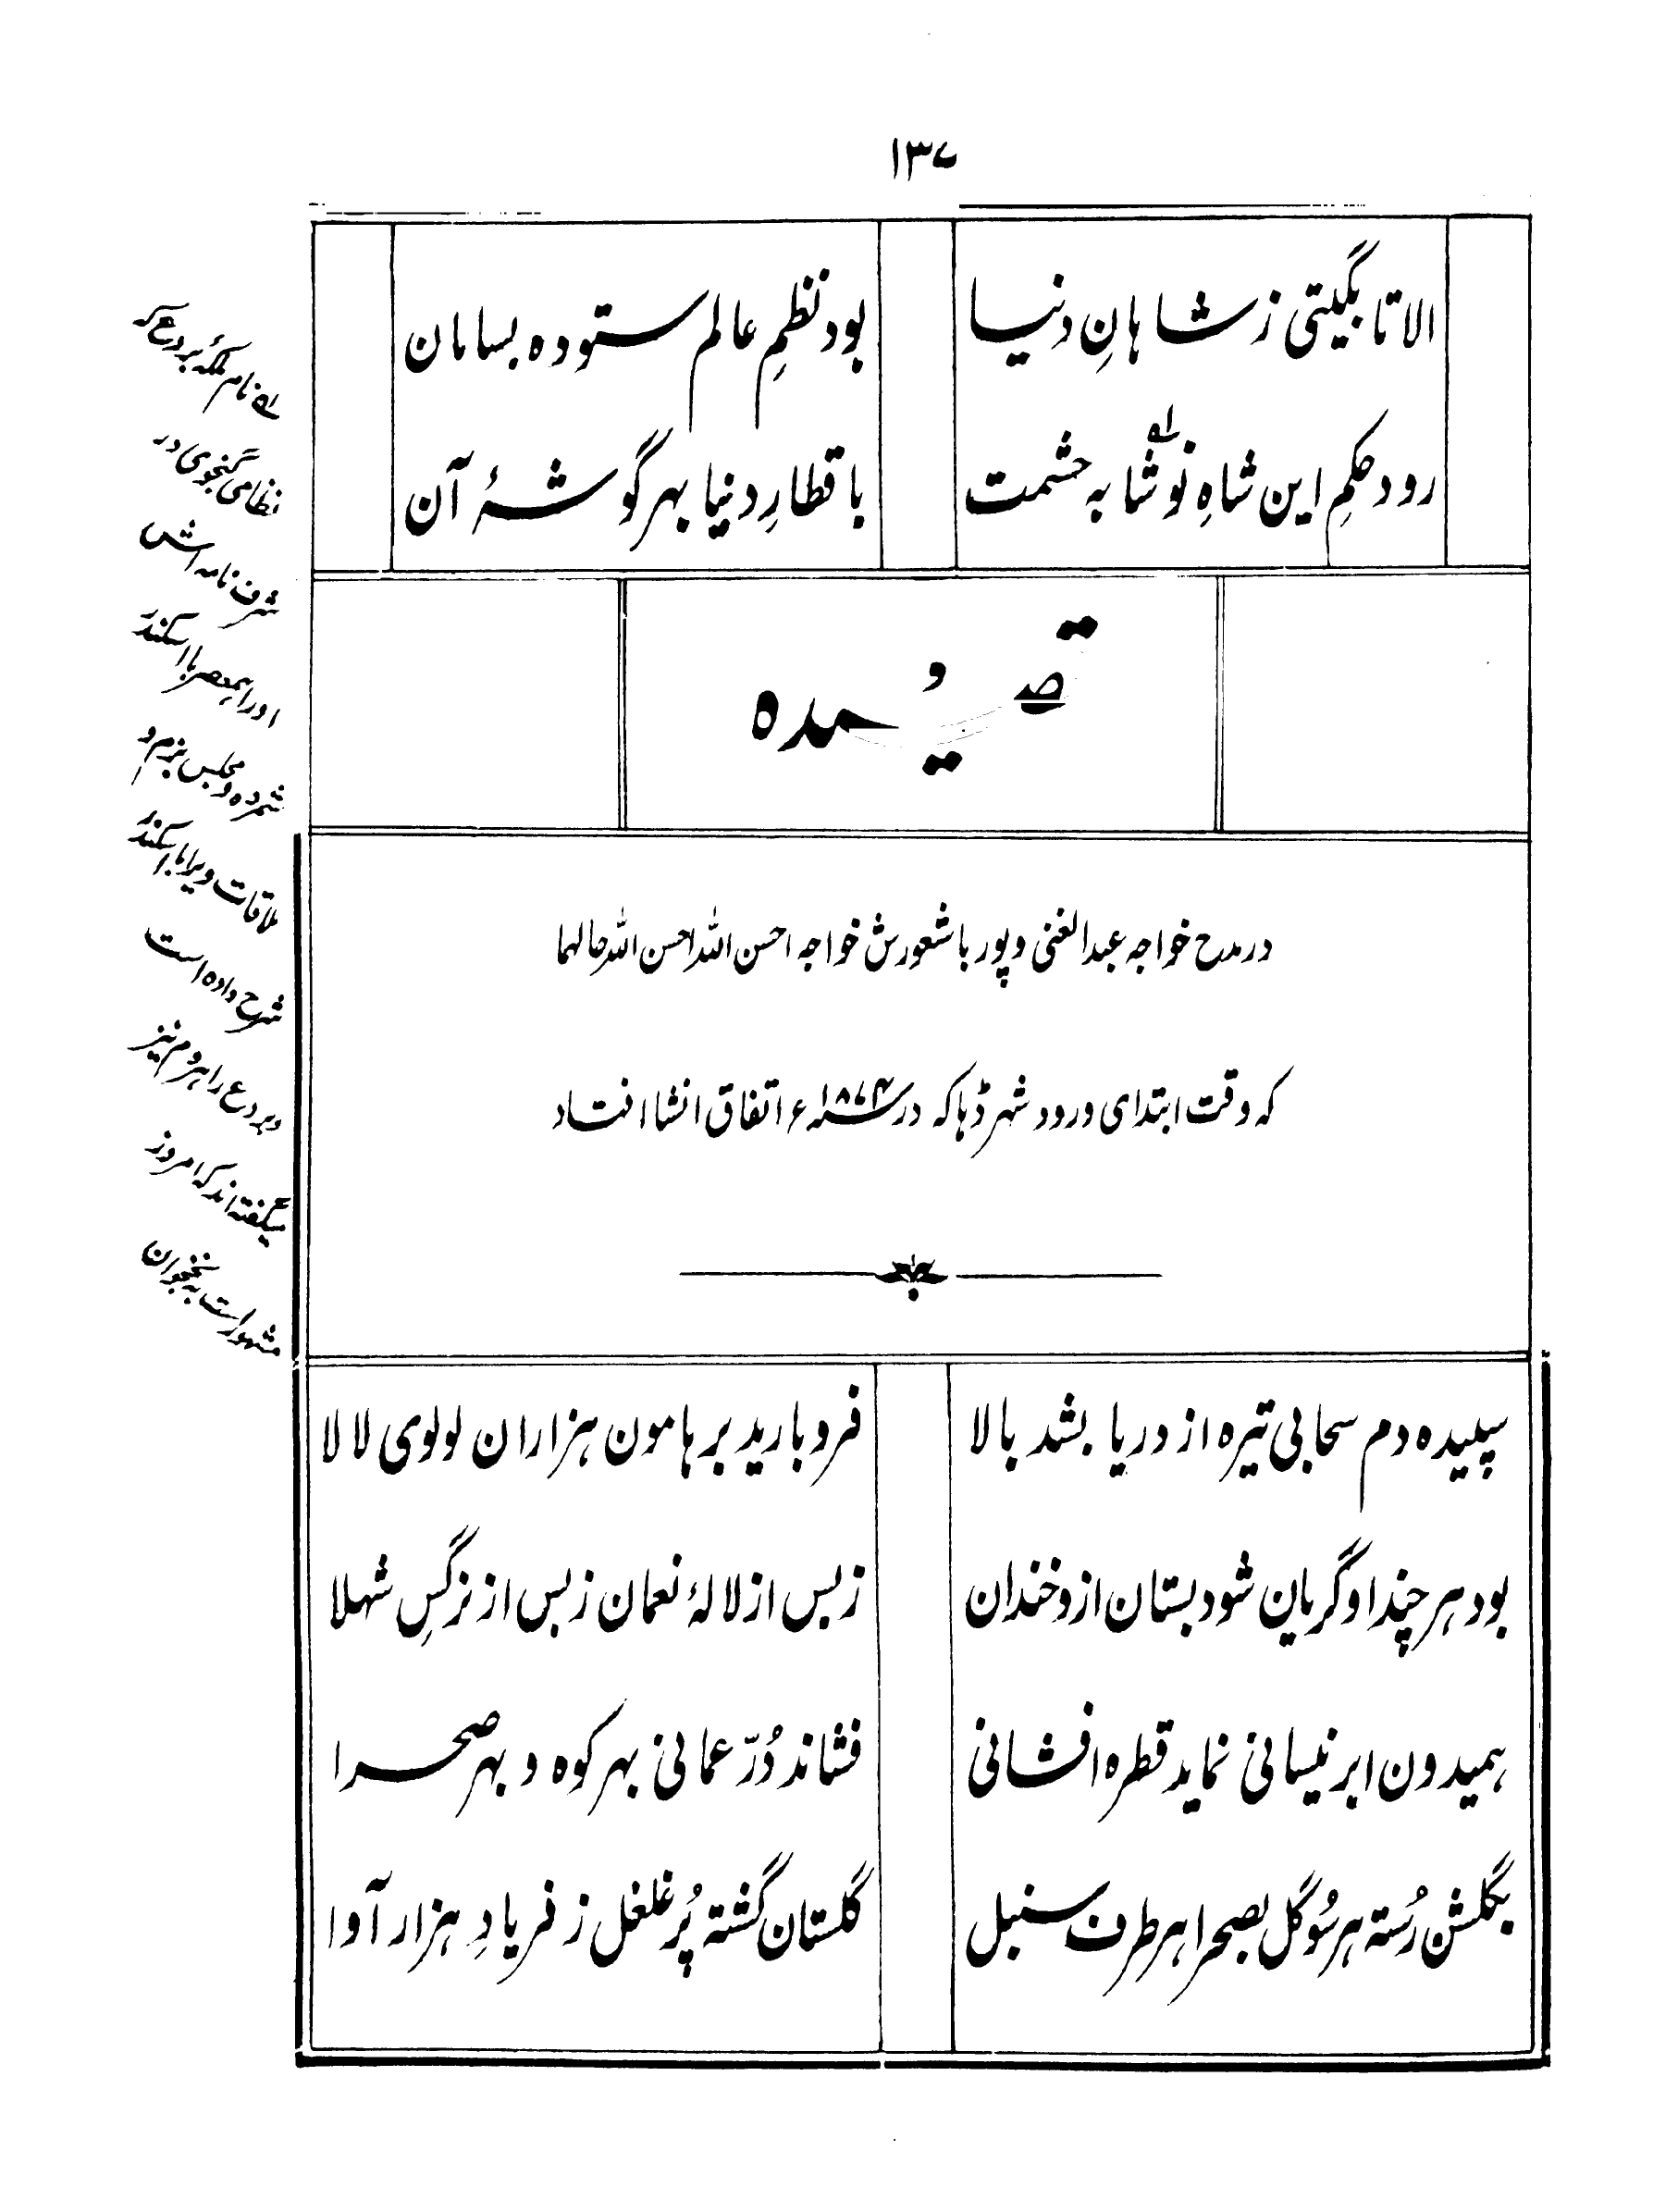 ١٣٧
الا تا بگیتی ز شاهانِ دنیا
بود نظمِ عالم ستوده بسامان
رود حکمِ این شاهِ نوشابه حشمت
باقطارِ دنیا بهر گوشۀ آن
قصیده
و
در مدح خواجه عبدالغنی و پور باشعورش خواجه احسن الله احسن الله حالهما
که وقت ابتدای ورود شهر ڈهاکه در سنه ۱۸۷۴ء اتفاق انشا افتاد
سپیده دم سحابی تیره از دریا بشد بالا
فرو بارید بر هامون هزاران لولوی لالا
بود هر چند او گریان شود بستان ازو خندان
ز بس از لالۀ نعمان ز بس از نرگسِ شهلا
همیدون ابر نیسانی نماید قطره افشانی
فشاند دُرّ عمانی بهر کوه و بهر صحرا
بگلشن رُسته هر سُو گل بصحرا هر طرف سنبل
گلستان گشته پُر غلغل ز فریادِ هزار آوا
له نام ملکۀ بردع که
نظامی گنجوی در
شرف نامه اش
اورا همعصر با اسکندر
شمرده و مجلس بزم و
ملاقات ویرا با اسکندر
شرح داده است
و بردع را هروم نیز
میگفته اند که امروز
مشهور است به نخجوان